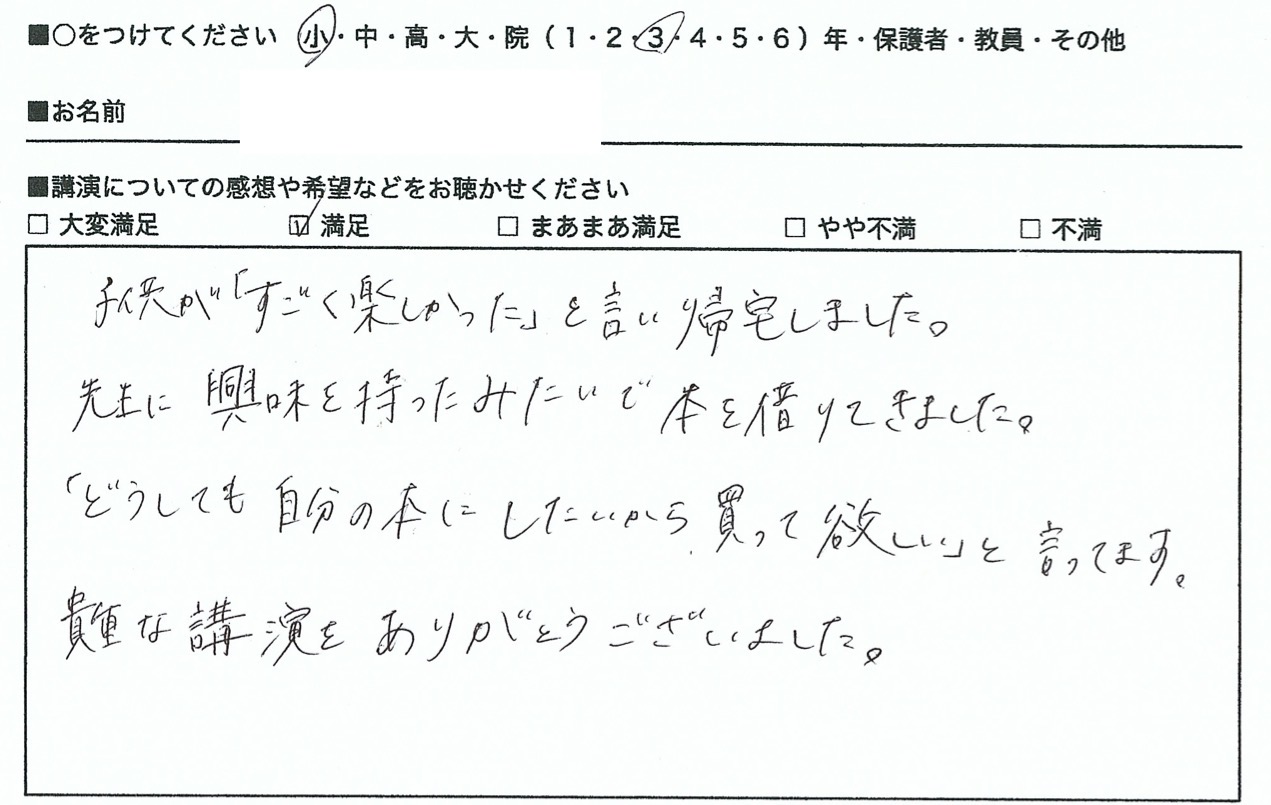 ■○をつけてください 小・中・高・大・院（1・2・3・4・5・6）年・保護者・教員・その他
■お名前
■講演についての感想や希望などをお聴かせください
□ 大変満足 ☑ 満足 □ まあまあ満足 □ やや不満 □ 不満
子供が「すごく楽しかった」と言い帰宅しました。
先生に興味を持ったみたいで本を借りてきました。
「どうしても自分の本にしたいから買って欲しい」と言ってます。
貴重な講演をありがとうございました。